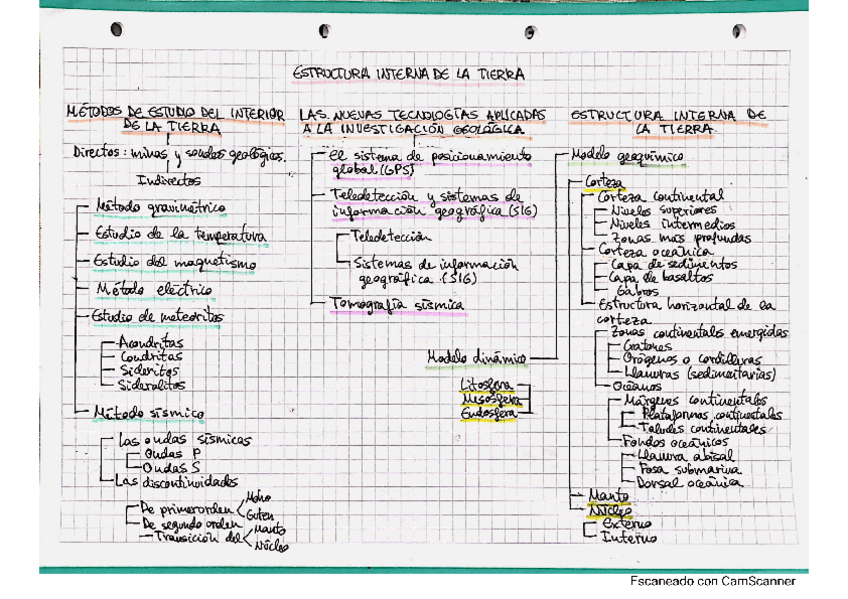 ESTRUCTURA INTERNA DE LA TIERRA
MÉTODOS DE ESTUDIO DEL INTERIOR
DE LA TIERRA
Directos: minas y sondeos geológicos.
Indirectos
Método gravimétrico
Estudio de la temperatura
Estudio del magnetismo
Método eléctrico
Estudio de meteoritos
Acondritas
Condritas
Sideritos
Sideralitos
Método sísmico
Las ondas sísmicas
Ondas P
Ondas S
Las discontinuidades
De primerorden
Moho
Guten
De segundo orden
Transición del
Manto
Núcleo
LAS NUEVAS TECNOLOGÍAS APLICADAS
A LA INVESTIGACIÓN GEOLÓGICA
El sistema de posicionamiento
global (GPS)
Teledetección y sistemas de
información geográfica (SIG)
Teledetección
Sistemas de información
geográfica (SIG)
Tomografía sísmica
ESTRUCTURA INTERNA DE
LA TIERRA
Modelo geoquímico
Corteza
Corteza continental
Niveles superiores
Niveles intermedios
Zonas más profundas
Corteza oceánica
Capa de sedimentos
Capa de basaltos
Gabros
Estructura horizontal de la
corteza
Zonas continentales emergidas
Cratones
Orógenos o cordilleras
Llanuras (sedimentarias)
Océanos
Márgenes continentales
Plataformas continentales
Taludes continentales
Fondos oceánicos
Llanura abisal
Fosa submarina
Dorsal oceánica
Manto
Núcleo
Externo
Interno
Modelo dinámico
Litosfera
Mesosfera
Endosfera
Escaneado con CamScanner